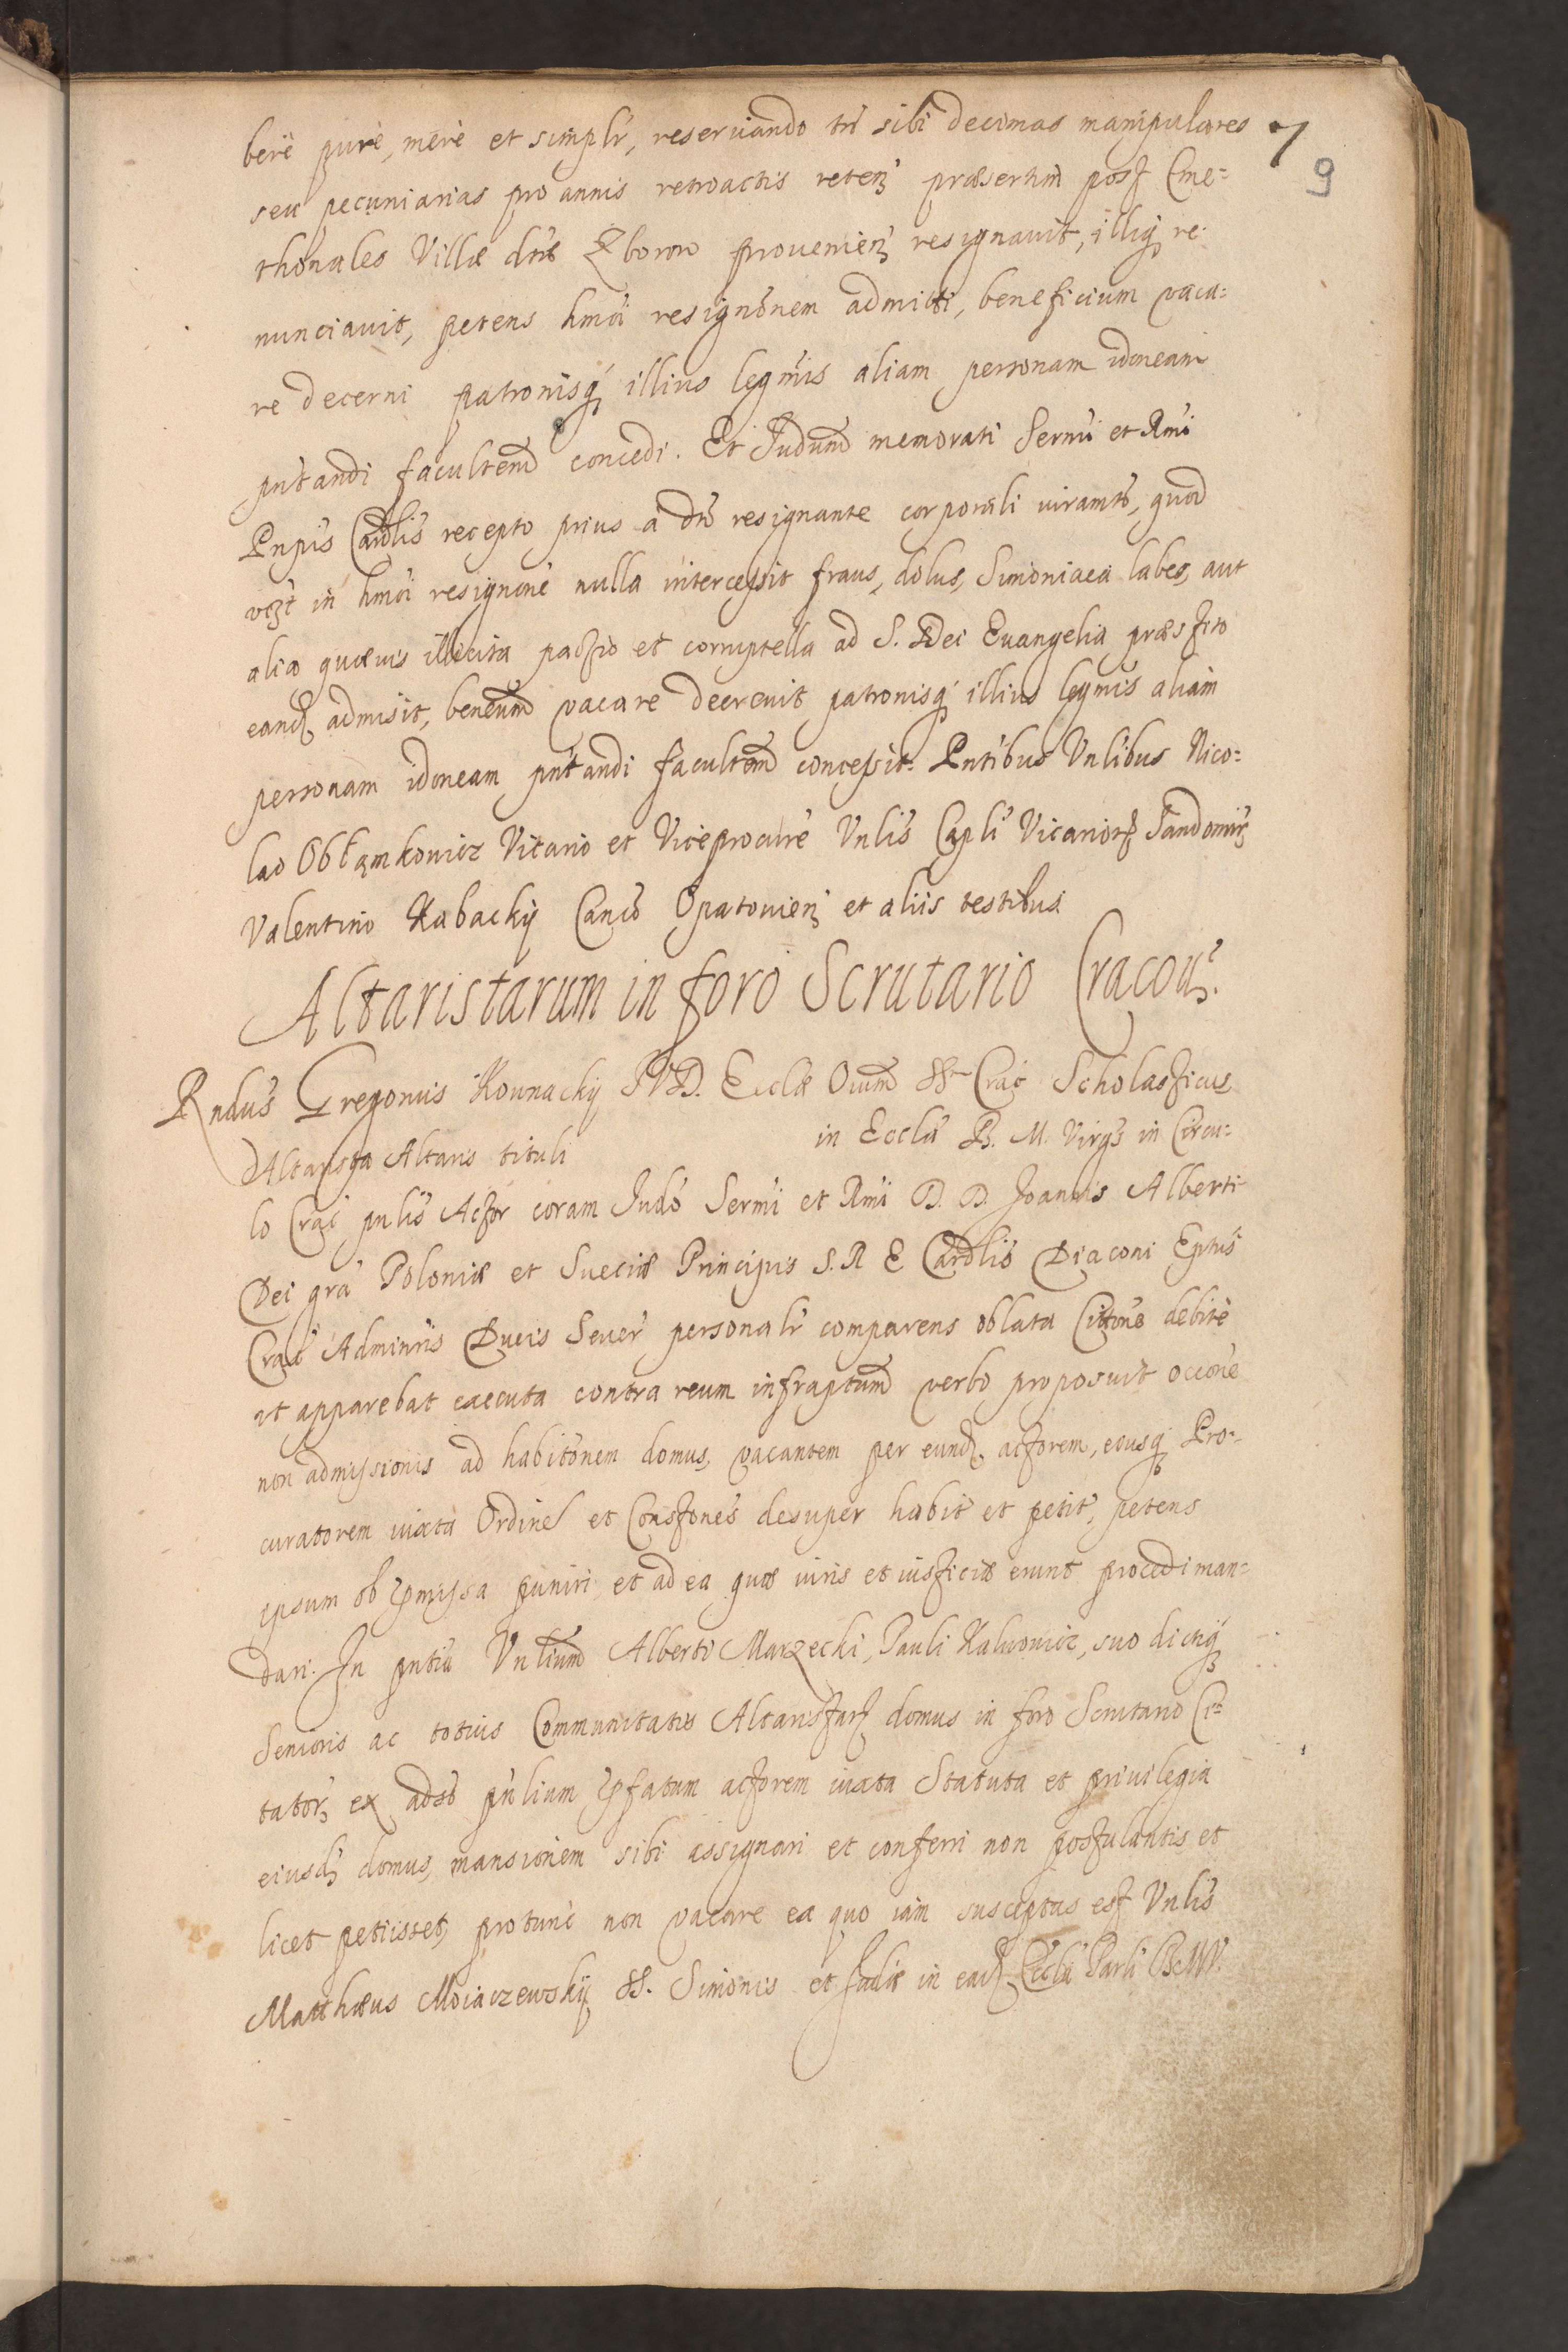 7
9
berè purè, merè et simplr, reseruando tn sibi decimas manipulares
seu pecuniarias pro annis retroactis reten præsertim post Cme=
thonales Villæ dtæ Zborow prouenien resignauit, illiq re-
nunciauit, petens hmoi resignonem admitti, beneficium vaca=
re decerni patronisq illius legmis aliam personam idoneam
pntandi facultem concedi. Et Judum memorati Sermi et Rmi
Pnpis Cardlis recepto prius à dto resignante corporali iuramto, quod
vtzt in hmoi resignone nulla intercessit fraus, dolus, Simoniaca labes, aut
alia quæuis illicita pactio et corruptella ad S. Dei Euangelia præstito
eand admisit, beneum vacare decreuit patronisq illius legmis aliam
personam idoneam pntandi facultem concessit. Pntibus Vnlibus Nico=
lao Obłąmkowicz Vicario et Viceprocutre Vnlis Capli Vicarior Sandomir
Valentino Kabackij Canco Opatouien et aliis testibus
Altaristarum in foro Scrutario Cracou.
Rndus Gregorius Kounackij IVD. Eccłæ Oium SS. Crac Scholasticus
Altarista Altaris tituli in Eccła B. M. Virgs in Circu=
lo Crac pnlis Actor coram Judo Sermi et Rmi D. D. Joannis Alberti
Dei gra Poloniæ et Sueciæ Principis S. R E Cardlis Diaconi Eptus
Crac Adminris Ducis Seuer personalr comparens oblata Cittone debitè
ut apparebat executa contra reum infraptum verbo proposuit occone
non admissionis ad habitonem domus, vacantem per eund actorem, eiusq Pro-
curatorem iuxta Ordines et Constones desuper habit et petit, petens
ipsum ob pmissa puniri et ad ea quæ iuris et iusticiæ erunt procedi man=
dari. In pntia Vnlium Alberti Marzecki, Pauli Kaluowicz, suo dictiq
Senioris ac totius Communitatis Altaristar domus in foro Scrutario Ci=
tator, ex adso pnlium pfatum actorem iuxta Statuta et priuilegia
eiusd domus, mansionem sibi assignari et conferri non postulantis et
licet petiisset, pro tunc non vacare ex quo iam susceptus est Vnlis
Matthæus Moiaczewskij SS. Simonis et Judæ in ead Eccła Parli B.M.V.